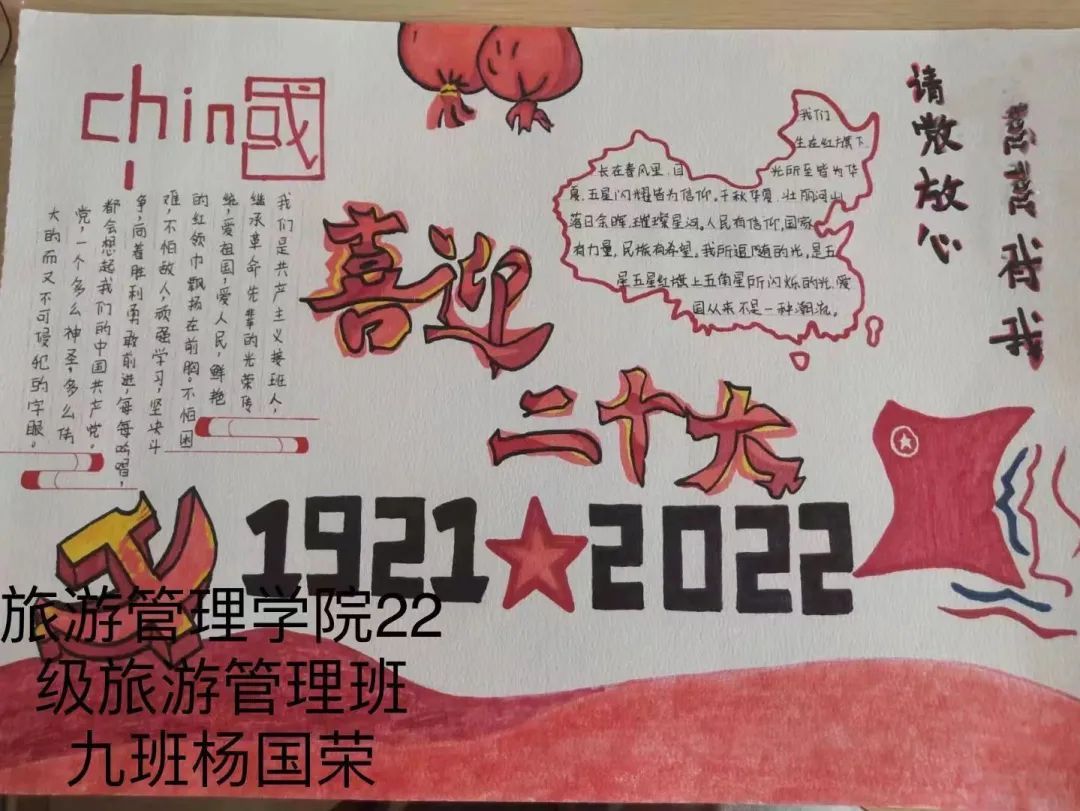 chin国
我们是共产主义接班人，
继承革命先辈的光荣传
统，爱祖国，爱人民，鲜艳
的红领巾飘扬在前胸。不怕困
难，不怕敌人，顽强学习，坚决斗
争，向着胜利勇敢前进，每每吟唱，
都会想起我们的中国共产党。
党，一个多么神圣，多么伟
大的而又不可侵犯的字眼。
喜迎
二十大
1921★2022
我们
生在红旗下，
长在春风里，目光所至皆为华
夏，五星闪耀皆为信仰。千秋华夏，壮丽河山
落日余晖，璀璨星河。人民有信仰，国家
有力量，民族有希望。我所追随的光，是五
星五星红旗上五角星所闪烁的光。爱
国从来不是一种潮流。
请放心
我
旅游管理学院22
级旅游管理班
九班杨国荣